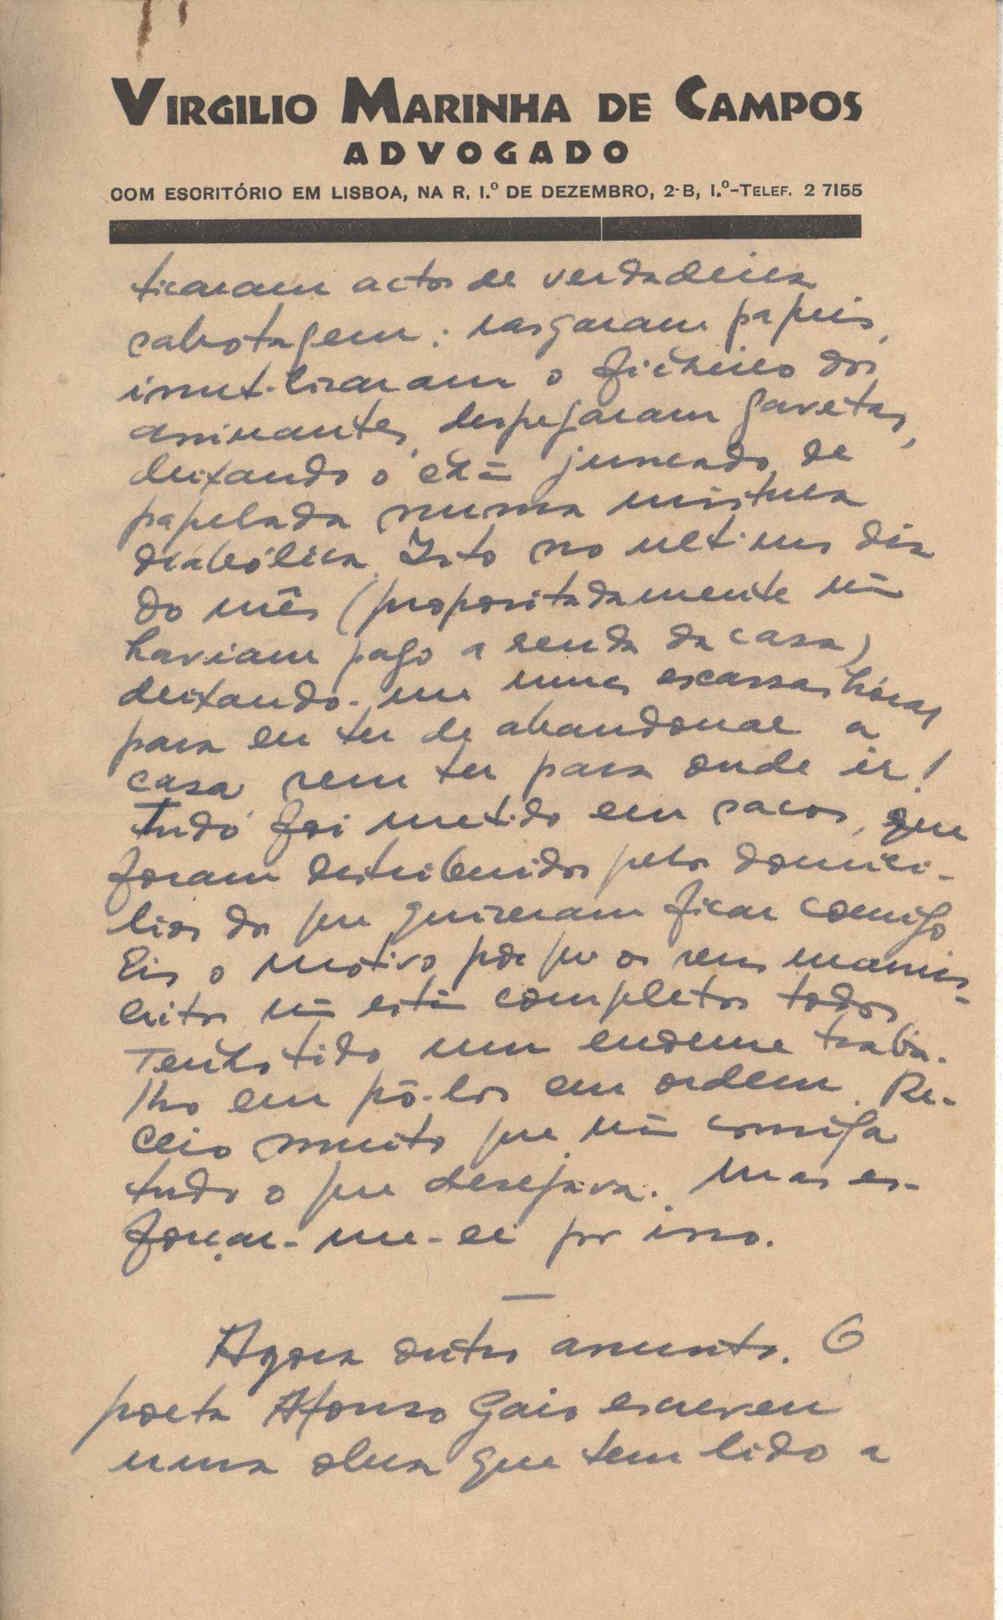 VIRGILIO MARINHA DE CAMPOS
ADVOGADO
COM ESCRITÓRIO EM LISBOA, NA R. 1.º DE DEZEMBRO, 2-B, 1.º-TELEF. 2 7155
ticaram actos de verdadeira
sabotagem: rasgaram papeis,
inutilizaram o ficheiro dos
assinantes, despejaram gavetas,
deixando o juncado de
papelada numa mistura
diabólica. Isto no ultimo dia
do mês (propositadamente nã
haviam pago a renda da casa)
deixando-me umas escassas hóras
para eu ter de abandonar a
casa, sem ter para onde ir!
Tudo foi metido em sacos, que
foram distribuidos pelos domici-
lios dos que quizeram ficar comigo
Eis o motivo porque os seus manus-
critos nã estã completos todos.
Tenho tido um enorme traba-
lho em pô-los em ordem. Re-
ceio muito que nã consiga
tudo o que desejava. Mas es-
forçar-me-ei por isso.
—
Agora outro assunto. O
poeta Afonso Gaio escreveu
uma obra que tem lido a